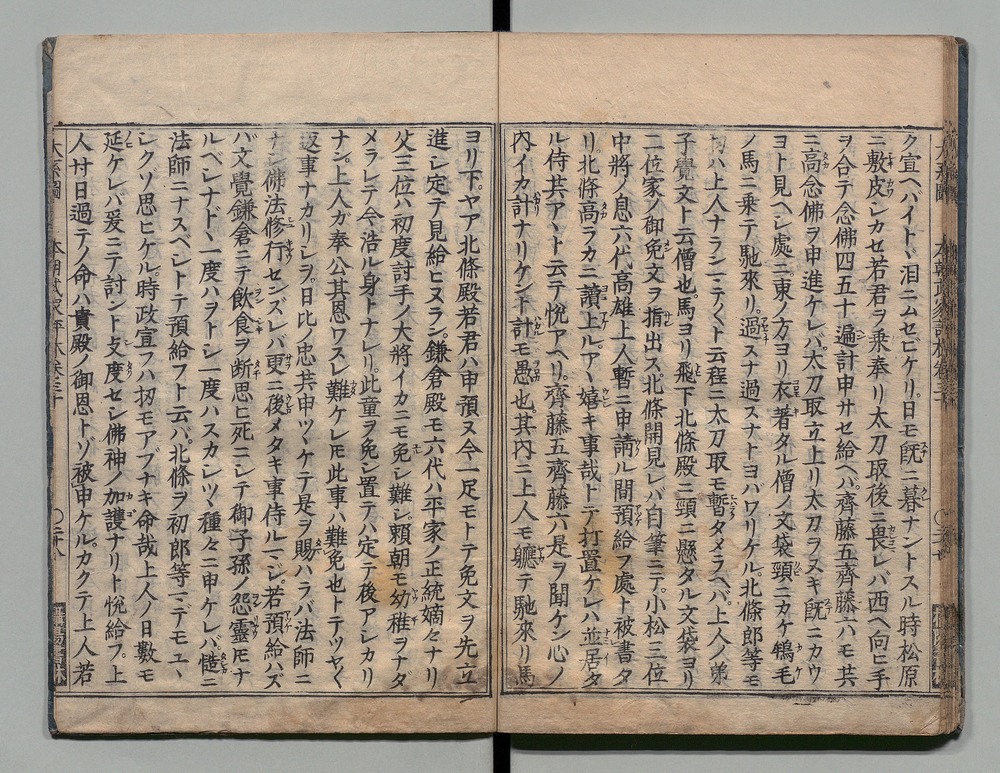 ク宣ヘバイトヾ泪ニムセビケリ。日モ既ニ暮ナントスル時松原
ニ敷皮シカセ若君ヲ乗奉リ太刀取後ニ畏レバ西ヘ向ヒ手
ヲ合テ念佛四五十遍計申サセ給ヘバ。齊藤五齊藤六モ共
ニ高念佛ヲ申進ケレバ。太刀取立上リ太刀ヲヌキ既ニカウ
ヨト見ヘシ處ニ。東ノ方ヨリ衣著タル僧ノ文袋頸ニカケ鴾毛
ノ馬ニ乗テ馳來リ。過スナ過スナトヨバワリケル。北條郎等モ
ハ上人ナランニテト云程ニ太刀取モ暫タメラヘバ。上人ノ弟
子覺文ト云僧也。馬ヨリ飛下北條殿ニ頸ニ懸タル文袋ヨリ
二位家ノ御免文ヲ指出ス。北條開見レバ白筆ニテ。小松三位
中將ノ息六代高雄上人暫ニ申請ル間預給フ處ト被書タ
リ。北條高ラカニ讀上ル。アハ嬉キ事哉トテ打置ケレハ並居タ
ル侍共アヽト云テ悦アヘリ。齊藤五齊藤六是ヲ聞ケン心ノ
内イカ計ナリケント計モ愚也。其内ニ上人モ軈テ馳來リ馬
ヨリ下。ヤア北條殿若君ハ申預ヌ今一足モトテ免文ヲ先立
進シ定テ見給ヒヌラン。鎌倉殿モ六代ハ平家ノ正統嫡々ナリ
父三位ハ初度討手ノ大將イカニモ免シ難シ。頼朝モ幼稚ヲナダ
メラレテ今浩ル身トナレリ。此童ヲ免シ置テハ定テ後アシカリ
ナン。上人ガ奉公其恩ワスレ難ケレ𪜈此事ハ難免也トテツヤ〱
返事ナカリシヲ。日比ノ忠共申ツヾケテ是ヲ賜ハラバ法師ニ
ナシ佛法修行センズレバ更ニ後メタキ事侍ルマジ。若預給ハズ
バ文覺鎌倉ニテ飲食ヲ断思ヒ死ニシテ御子孫ノ怨靈𪜈ナ
ルベシナド丶一度ハヲトシ一度ハスカシツ種々ニ申ケレバ。慥ニ
法師ニナスベシトテ預給フト云バ。北條ヲ初郎等マデモユヽ
シクゾ思ヒケル。時政宣フハ扨モアブナキ命哉上人ノ日數モ
延ケレバ爰ニテ討ント支度セシ佛神ノ加護ナリト悦給フ。上
人廿日過テノ命ハ貴殿ノ御恩トゾ被申ケル。カクテ上人若
本朝武家評林巻三十
〇二十八